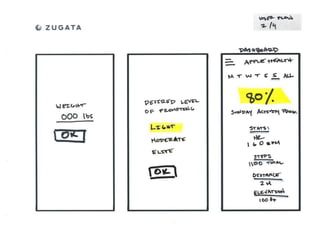 USER FLOW
2/4
ZUGATA
WEIGHT
000 lbs
OK
DESIRED LEVEL
OF PROMPTING
LIGHT
MODERATE
ELITE
OK
DASHBOARD
APPLE HEALTH
M T W T F S ALL
80%
SUNDAY ACTIVITY
STATS:
HR
160 BPM
STEPS
1100 TOTAL
DISTANCE
2 M
ELEVATION
100 Ft